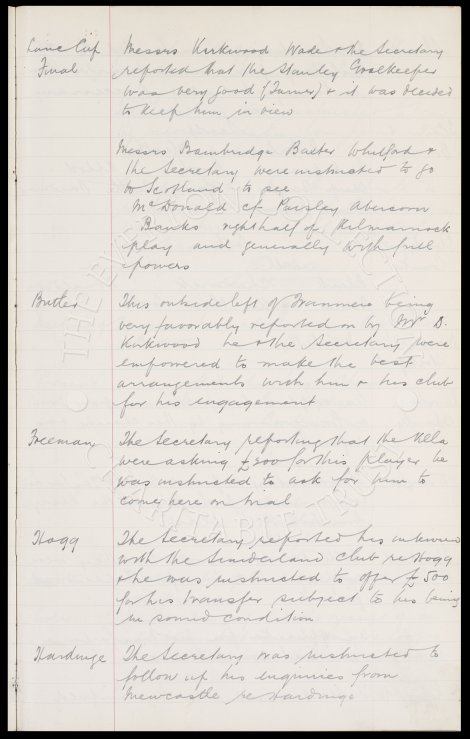 Lanc Cup Final
Messrs Kirkwood Wade & the Secretary
reported that the Stanley Goalkeeper
was very good (Turner) & it was decided
to keep him in view
Messrs Bainbridge Baxter Whitford &
the Secretary were instructed to go
to Scotland to see
McDonald cf Paisley Abercorn
Banks right half of Kilmarnock
play and generally with full
powers
Butler
This outside left of Tranmere being
very favorably reported on by Mr D.
Kirkwood he & the Secretary were
empowered to make the best
arrangements with him & his club
for his engagement
Freeman
The Secretary reporting that the Villa
were asking £300 for this player he
was instructed to ask for him to
come here on trial
Hogg
The Secretary reported his interview
with the Sunderland club re Hogg
& he was instructed to offer £500
for his transfer subject to his being
in sound condition
Hardinge
The Secretary was instructed to
follow up his enquiries from
Newcastle re Hardinge
THE EVERTON COLLECTION
CHARITABLE TRUST